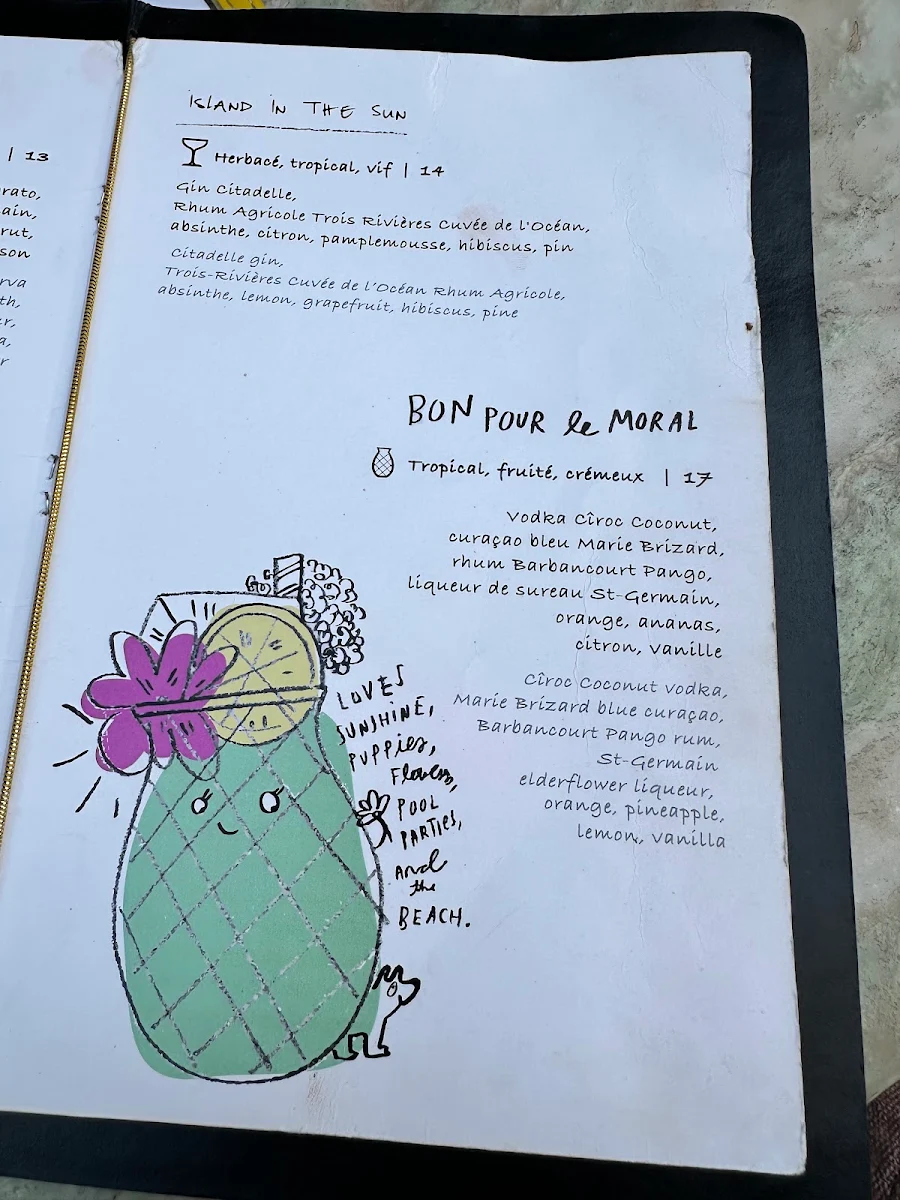 | 13
rato,
ain,
rut,
son
rva
th,
ur,
a,
r
ISLAND IN THE SUN
Herbacé, tropical, vif | 14
Gin Citadelle,
Rhum Agricole Trois Rivières Cuvée de l'Océan,
absinthe, citron, pamplemousse, hibiscus, pin
Citadelle gin,
Trois-Rivières Cuvée de l'Océan Rhum Agricole,
absinthe, lemon, grapefruit, hibiscus, pine
BON POUR le MORAL
Tropical, fruité, crémeux | 17
Vodka Cîroc Coconut,
curaçao bleu Marie Brizard,
rhum Barbancourt Pango,
liqueur de sureau St-Germain,
orange, ananas,
citron, vanille
Cîroc Coconut vodka,
Marie Brizard blue curaçao,
Barbancourt Pango rum,
St-Germain
elderflower liqueur,
orange, pineapple,
lemon, vanilla
LOVES
SUNSHINE,
PUPPies,
Flowers,
POOL
PARTIES,
And
the
BEACH.